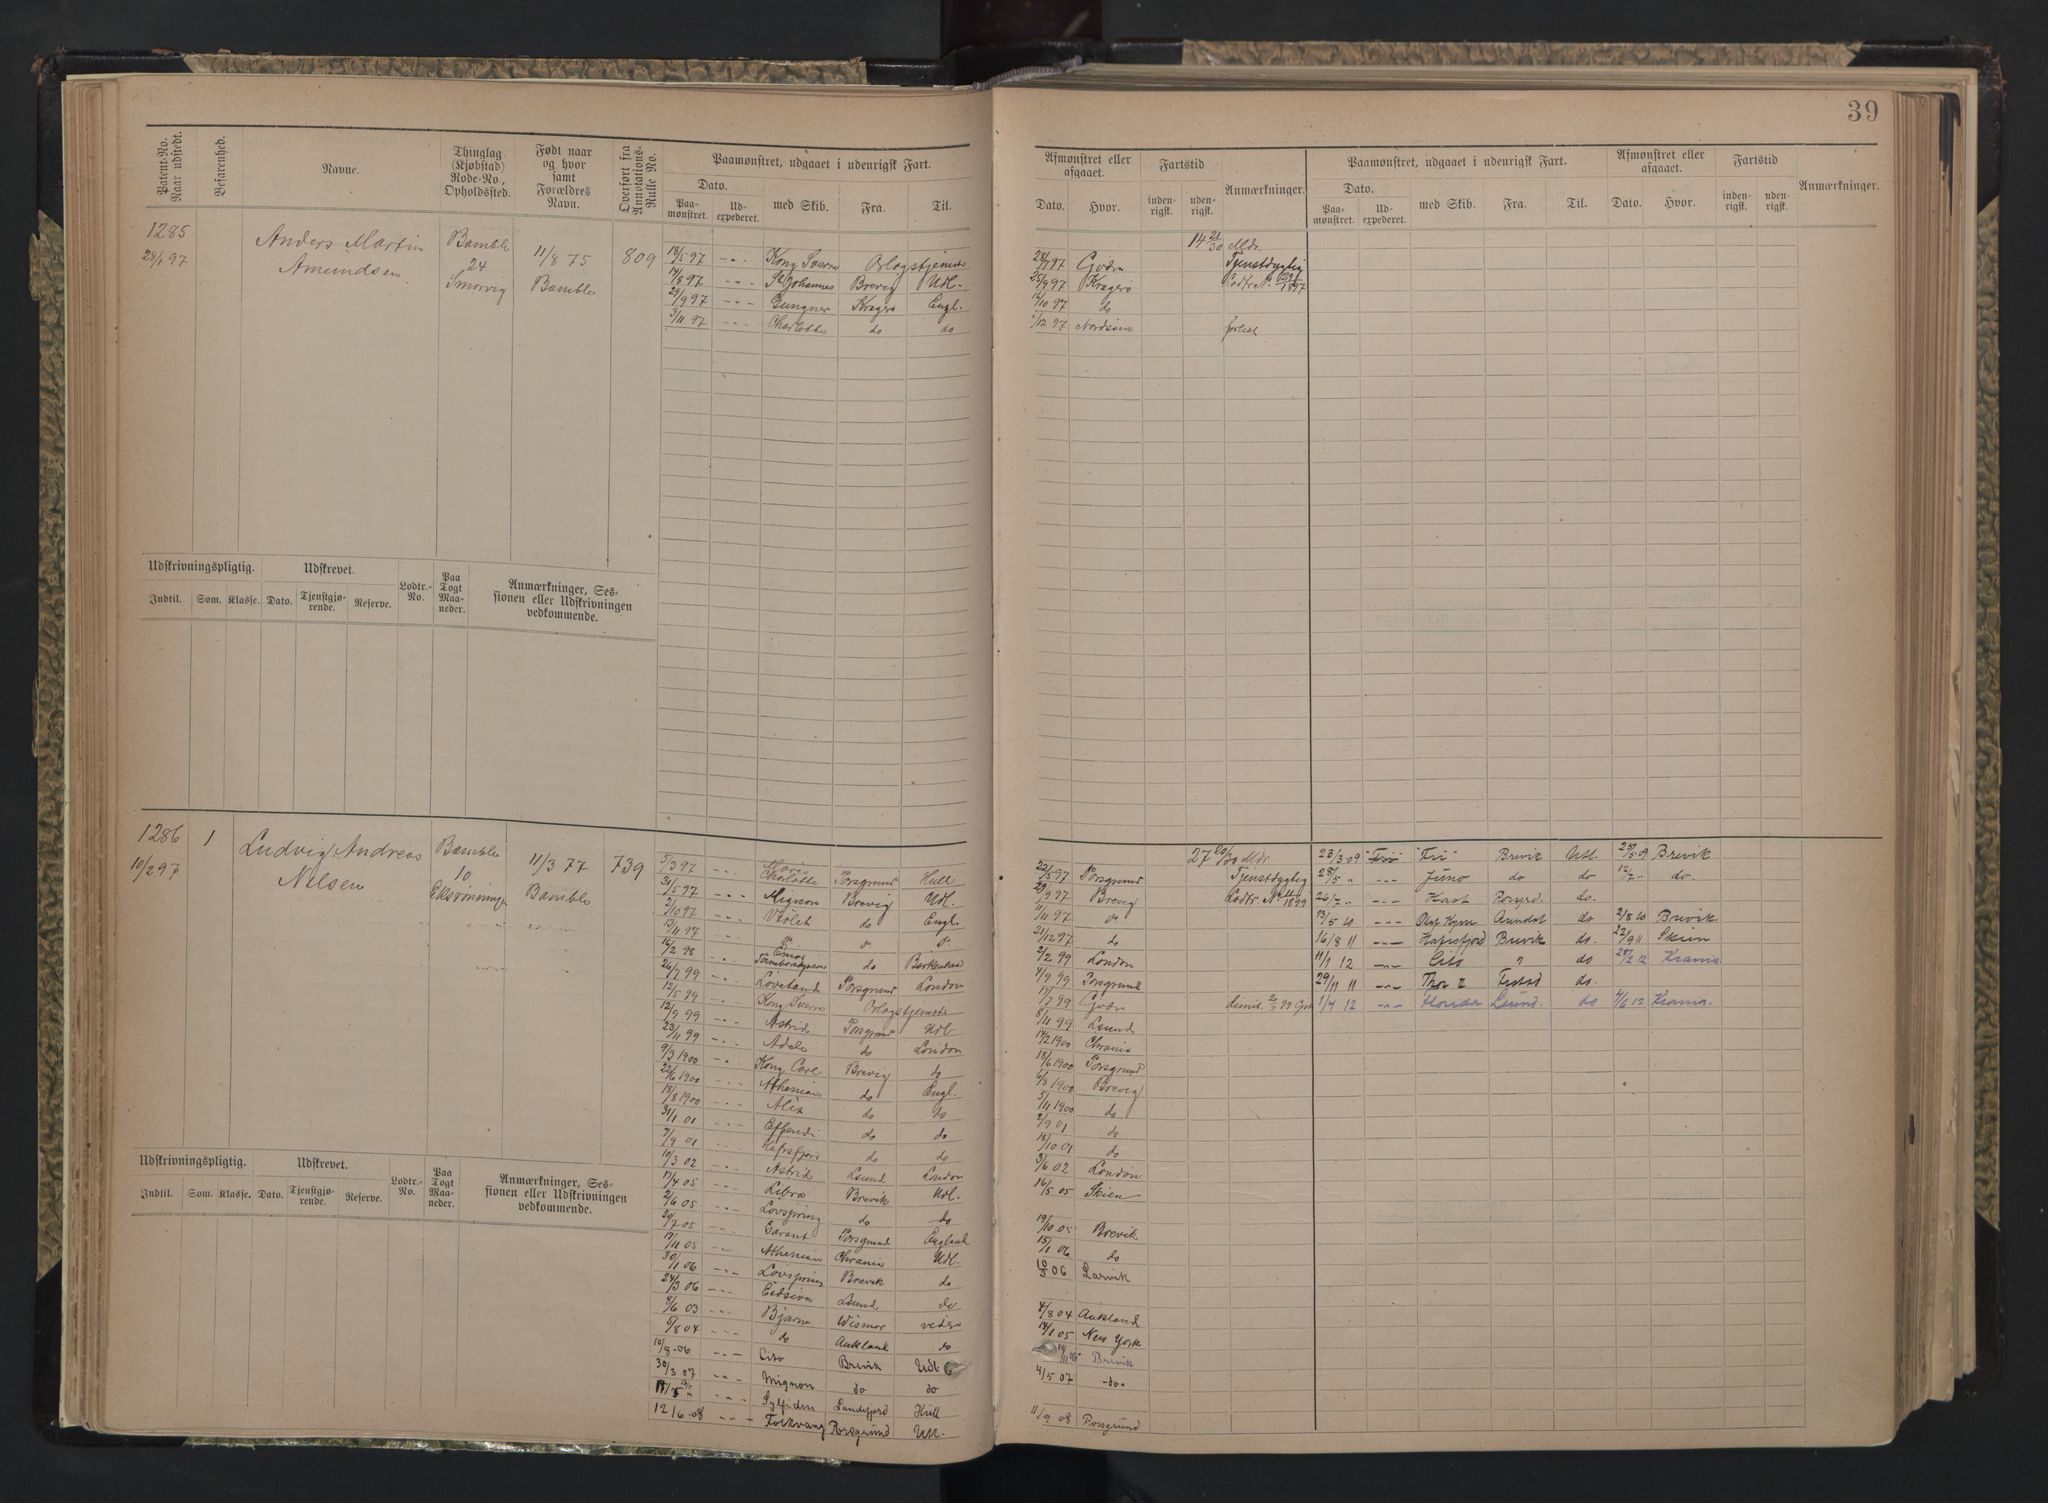 39
Patent-No. Naar udstedt.
Befarenhed.
Navne.
Thinglag (Kjøbstad) Rode-No., Opholdssted.
Født naar og hvor samt Forældres Navn.
Overført fra Annotations-Rulle No.
Paamønstret, udgaaet i udenrigsk Fart.
Dato.
Paa-mønstret. Ud-expederet. med Skib. Fra. Til.
Afmønstret eller afgaaet. Fartstid
Dato. Hvor. inden-rigsk. uden-rigsk. Anmærkninger.
Paamønstret, udgaaet i udenrigsk Fart. Afmønstret eller afgaaet. Fartstid
Dato.
Paa-mønstret. Ud-expederet. med Skib. Fra. Til. Dato. Hvor. inden-rigsk. uden-rigsk. Anmærkninger.
1285
28/1 97
Anders Martin
Amundsen
Bamble
24
11/8 75
Bamble
809
18/5 97 - - - Kong Sverre Orlogstjeneste
17/8 97 - - - St Johannes Brevig Udl.
29/9 97 - - - Gungner Kragerø Engl.
3/11 97 - - - Charlotte do do
14 21/30 Mdr.
28/7 97
Tjenstdygtig
25/9 97 Kragerø
16/10 97 do
1/12 97 Nordsøen forlist
Udskrivningspligtig. Udskrevet. Lodtr.-No. Paa Togt Maa-neder. Anmærkninger, Ses-sionen eller Udskrivningen vedkommende.
Indtil. Som. Klasse. Dato. Tjenstgjø-rende. Reserve.
1286 1
10/2 97
Ludvig Andreas
Nilsen
Bamble
10
11/3 77
Bamble
739
5/3 97 - - - Marie Charlotte Porsgrund Hull
31/5 97 - - - Mignon Brevig Udl.
2/10 97 - - - Violet do Engl.
13/11 97
16/2 98 - - - do
26/7 99 - - - Løveland Porsgrund London
12/5 99 - - - Kong Sverre Orlogstjeneste
12/9 99 - - - Astrid Porsgrund Udl
23/11 99 - - - Adele do London
9/3 1900 - - - Kong Carl Brevig do
22/6 1900 - - - Athenian do Engl.
18/8 1900 - - - Alix do do
31/1 01 - - - Effendi do do
7/9 01 - - - Hafrsfjord do do
10/3 02 - - - Astrid Lsund London
17/4 05 - - - Libra Brevik Udl.
2/6 05 - - - Lovspring do do
20/7 05 - - - Garant Porsgrund England
17/11 05 - - - Athenian Chrania Udl.
30/1 06 - - - Lovspring Brevik do
24/3 06 - - - Eidsiva Lsund do
8/6 03 - - - Bjarne Wismar
5/8 04 - - - do Aukland do
10/8 - 06 - - - Cito Brevik Udl
30/3 07 - - - Mignon do do
- - - Sylfiden Sandefjord Hull
12/6 - 08 - - - Folkvang Porsgrund Udl.
27 Mdr.
22/5 97 Porsgrund Tjenstdygtig
29/9 97 Brevig
11/11 97 do
21/12 97 do
2/2 99 London
4/9 99 Porsgrund
17/7 99
8/11 99 Lsund
14/2 1900 Chrania
18/6 1900 Porsgrund
6/8 1900 Brevig
5/11 1900 do
2/9 01 do
18/10 01 do
3/6 02 London
16/5 05 Skien
19/10 05 Brevik
15/1 06 do
10/3 06 Larvik
4/8 04 Aukland
14/1 05 New York
Brevik
4/5 07 - do -
11/9 08 Porsgrund
23/3 09 "Fri" Brevik Utl. Brevik
28/5 " - - - Juno do do 12/7 " do.
26/7 " - - - Porsgrd. do.
13/5 10 - - - Arendal do 2/8 10 Brevik
16/8 11 - - - Hafrsfjord Brevik do. 22/9 11 Skien
11/1 12 - - - Cito " do 28/2 12 Krania
29/11 11 - - - Thor II do.
1/4 12 - - - Florida Lsund. do 4/6 12 Krania.
Udskrivningspligtig. Udskrevet. Lodtr.-No. Paa Togt Maa-neder. Anmærkninger, Ses-sionen eller Udskrivningen vedkommende.
Indtil. Som. Klasse. Dato. Tjenstgjø-rende. Reserve.